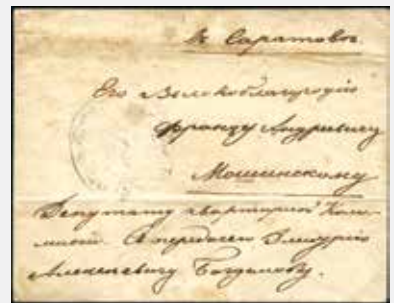 въ Саратовъ.
Его Высокоблагородію
Францу Андреевичу
Мошинскому
Депутату квартирной Ком-
мисіи. С передачею Дмитрію
Алексеевичу Богданову.